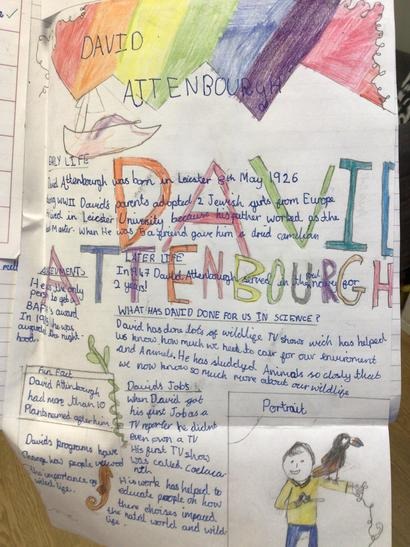 DAVID
ATTENBOURGH
DAVID
ATTENBOURGH
EARLY LIFE
David Attenbourgh was born in Leicster 8th May 1926
WWII David's parents adopted 2 Jewish girls from Europe
lived in Leicster University because his father worked as the
Master. When He was a friend gave him a dried
LATER LIFE
In 1947 David Attenbourgh served in the navy for
2 years!
He is the only
person to get a
BAFTA award
In 19 he was
the night-
hood.
WHAT HAS DAVID DONE FOR US IN SCIENCE?
David has done lots of wildlige TV shows wich has helped
us know how much we have to care for our enviroment
and Animals. He has studdyed Animals so closly that
we now know so much more about our wildlige
Fun Fact
David Attinbourgh
had more than 10
Plants named agter him.
Davids programs have
change how people viewed
the importance of
wiled lige.
Davids Jobs
When David got
his first Job as a
TV reporter he didnt
even own a TV
His first TV show
was called Coelaca
nth
His work has helped to
educate people on how
there choises impared
the natral world and wild
lige.
Portrait